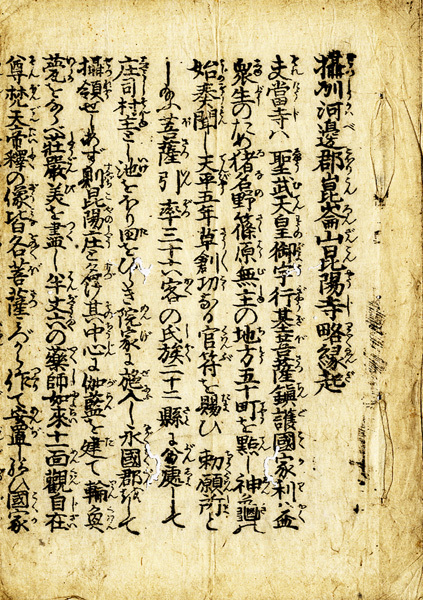 攝州河邊郡崑崙山昆陽寺略縁起
夫當寺ハ聖武天皇御宇行基菩薩鎮護國家利益
衆生のため猪名野篠原無主の地方五十町を點し神亀
始奏聞し天平五年草創功なる官符を賜ひ勅願所と
し給ふ菩薩引率三十六客の氏族二十二縣に分處して
庄司村主とし池をほり田をひらき院家に施入し永國郡として
攝領せしめず則昆陽庄と名付其中心に伽藍を建て輪奐
甍をならべ莊嚴美を盡し半丈六の藥師如來十一面觀自在
尊梵天帝釋の像皆名菩薩作て安置し給ひ國家